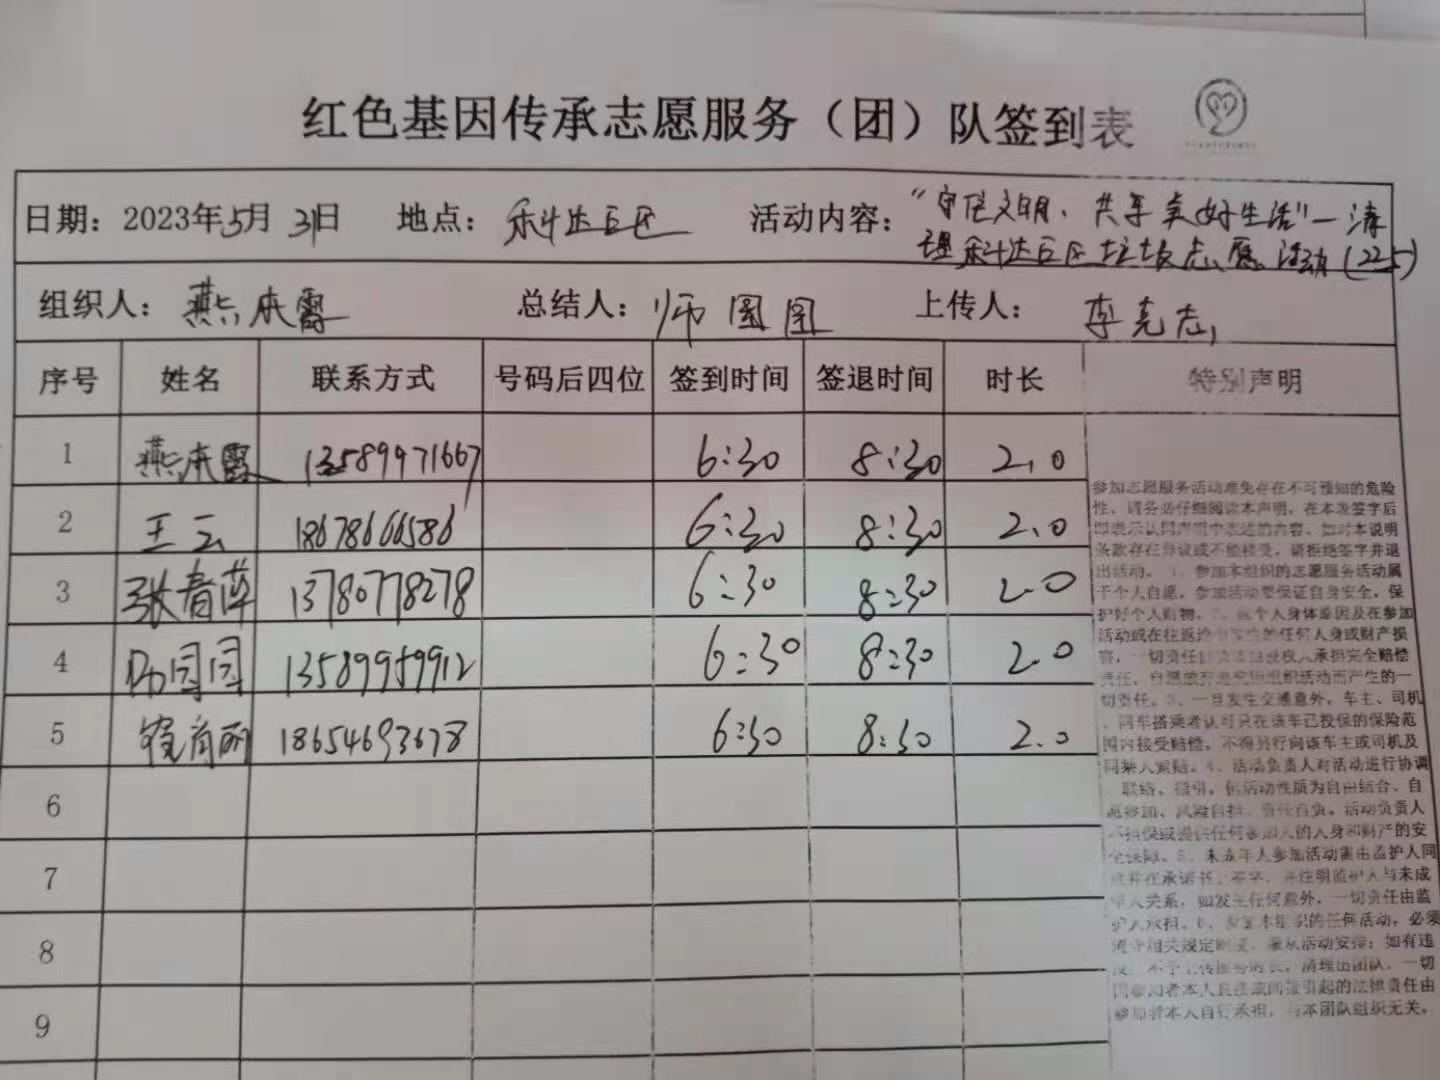 红色基因传承志愿服务（团）队签到表
日期：2023年5月31日 地点：科达巨区 活动内容：“守住文明、共享美好生活”—清
理科达巨区垃圾志愿活动(225)
组织人：燕本霞 总结人：师园园 上传人：李克志
序号 姓名 联系方式 号码后四位 签到时间 签退时间 时长 特别声明
1 燕本霞 13589971667 6:30 8:30 2.0
2 王云 18678666586 6:30 8:30 2.0
3 张春萍 13780778278 6:30 8:30 2.0
4 师园园 13589959912 6:30 8:30 2.0
5 18654693678 6:30 8:30 2.0
6
7
8
9
参加志愿服务活动难免存在不可预知的危险
性，请务必仔细阅读本声明，在本表签字后
即表示认同声明中表述的内容，如对本说明
条款存在异议或不能接受，请拒绝签字并退
出活动。1、参加本组织的志愿服务活动属
于个人自愿，参加活动要保证自身安全，保
护好个人财物。2、因个人身体原因及在参加
活动或在往返途中发生的任何人身或财产损
害，一切责任由承担完全赔偿
责任，组织活动而产生的一
切责任。3、一旦发生交通意外，车主、司机
、同车搭乘者认可只在该车已投保的保险范
围内接受赔偿，不得另行向该车主或司机及
同乘人索赔。4、活动负责人对活动进行协调
、联络、指引，但活动性质为自由结合、自
愿参加、风险自担、责任自负。活动负责人
不担保或提供任何参加人的人身和财产的安
全保障。5、未成年人参加活动需由监护人同
意并在承诺书上签字，并注明监护人与未成
年人关系，如发生任何意外，一切责任由监
护人承担。6、参加本组织的任何活动，必须
遵守相关规定制度，服从活动安排；如有违
反，不予上传服务时长，清理出团队。一切
因参加者本人直接或间接引起的法律责任由
参加者本人自行承担，与本团队组织无关。